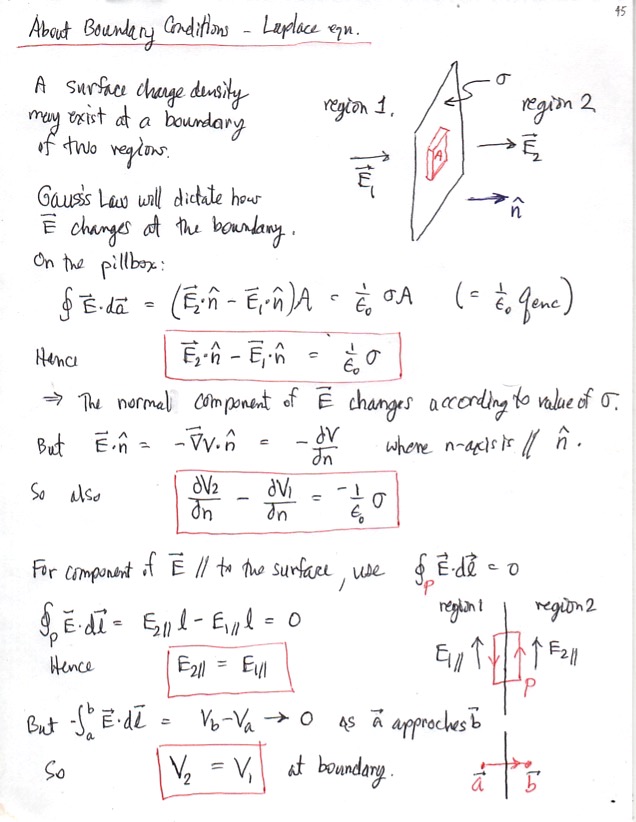 45
About Boundary Conditions - Laplace eqn.
A surface charge density
may exist at a boundary
of two regions.
region 1.
σ
region 2
A
E⃗₁
E⃗₂
n̂
Gauss's Law will dictate how
E⃗ changes at the boundary.
On the pillbox:
∮ E⃗·da⃗ = (E⃗₂·n̂ - E⃗₁·n̂)A = 1/ε₀ σA (= 1/ε₀ qenc)
Hence E⃗₂·n̂ - E⃗₁·n̂ = 1/ε₀ σ
⇒ The normal component of E⃗ changes according to value of σ.
But E⃗·n̂ = -∇⃗V·n̂ = -∂V/∂n where n-axis is // n̂.
So also ∂V₂/∂n - ∂V₁/∂n = -1/ε₀ σ
For component of E⃗ // to the surface, use ∮P E⃗·dl⃗ = 0
∮P E⃗·dl⃗ = E₂// l - E₁// l = 0
Hence E₂// = E₁//
region 1 region 2
E₁// E₂//
P
But -∫ₐᵇ E⃗·dl⃗ = Vb - Va → 0 as a⃗ approches b⃗
So V₂ = V₁ at boundary.
a⃗ b⃗